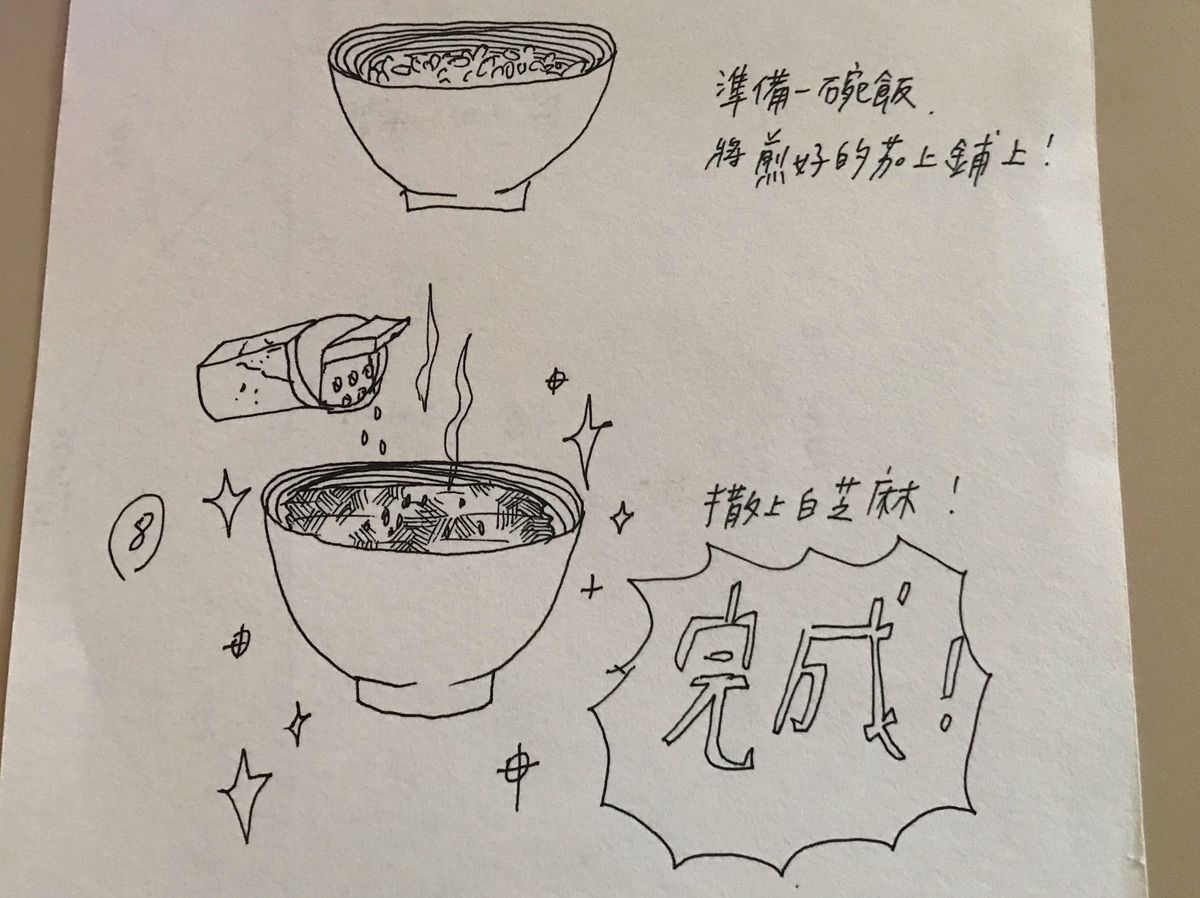 準備一碗飯.
將煎好的茄上鋪上!
⑧
撒上白芝麻!
完成!